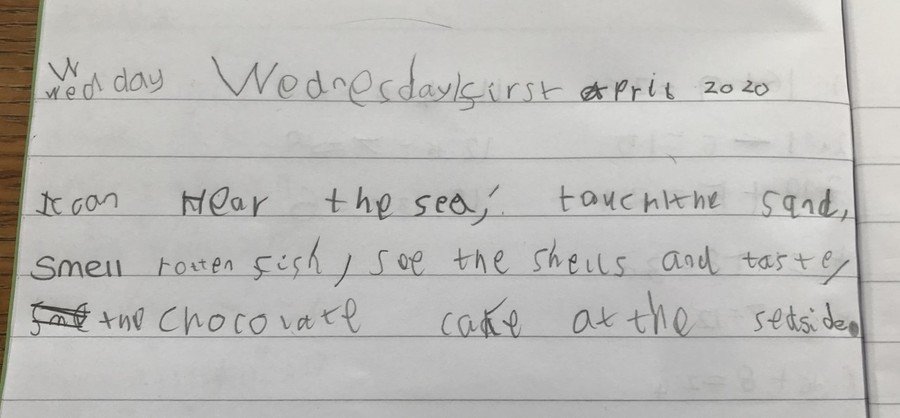 Wedday Wednesday first April 2020
It can Hear the sea, touch the sand,
Smell rotten fish, see the shells and taste,
the chocolate cake at the seaside.